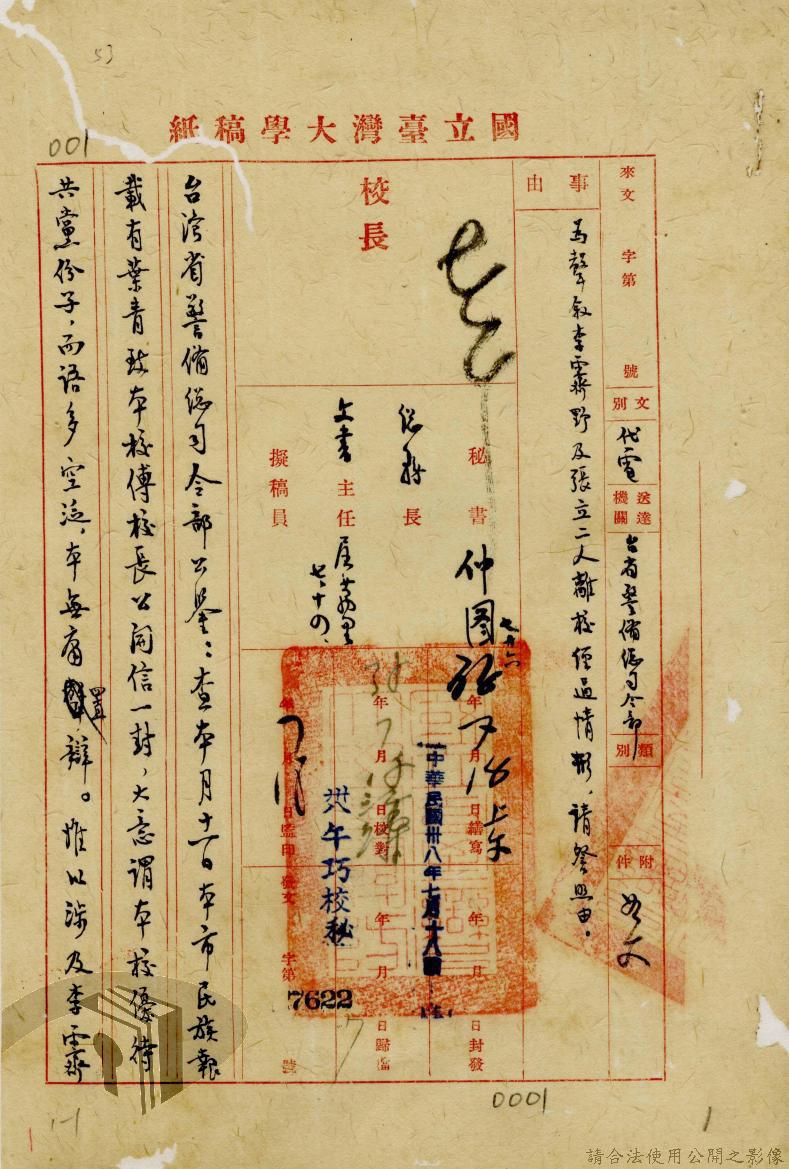 53
001
國立臺灣大學稿紙
來文 字第 號
文別 代電
送達機關 台省警備總司令部
類別
附件 如文
事由
為聲敘李霽野及張立二人離校經過情形,請詧照由。
校長
秘書 仲圖 七、十六
總務長
文書主任 七、十四、
擬稿員
年 7 月 18 日繕寫 上午
年 7 月 日校對
年 月 日監印
年 月 日封發
年 月 日歸檔
中華民國卅八年七月十八日
卅八午巧校秘
發文 字第 7622 號
台灣省警備總司令部公鑒:查本月十一日本市民族報
載有葉青致本校傅校長公開信一封,大意謂本校優待
共黨份子,而語多空泛,本無庸置辯。惟以涉及李霽
0001
1-1
1
請合法使用公開之影像